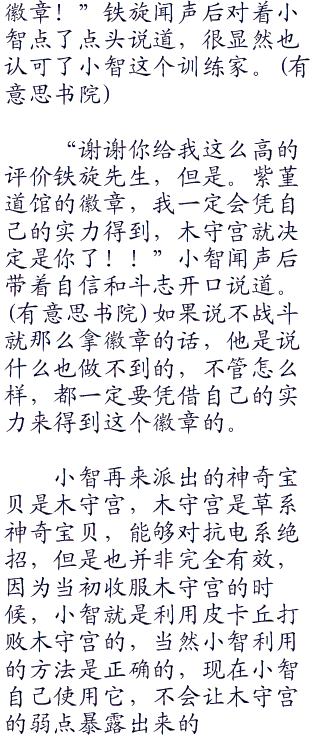 徽章！”铁旋闻声后对着小
智点了点头说道，很显然也
认可了小智这个训练家。(有
意思书院)
“谢谢你给我这么高的
评价铁旋先生，但是。紫堇
道馆的徽章，我一定会凭自
己的实力得到，木守宫就决
定是你了！！”小智闻声后
带着自信和斗志开口说道。
(有意思书院)如果说不战斗
就那么拿徽章的话，他是说
什么也做不到的，不管怎么
样，都一定要凭借自己的实
力来得到这个徽章的。
小智再来派出的神奇宝
贝是木守宫，木守宫是草系
神奇宝贝，能够对抗电系绝
招，但是也并非完全有效，
因为当初收服木守宫的时
候，小智就是利用皮卡丘打
败木守宫的，当然小智利用
的方法是正确的，现在小智
自己使用它，不会让木守宫
的弱点暴露出来的